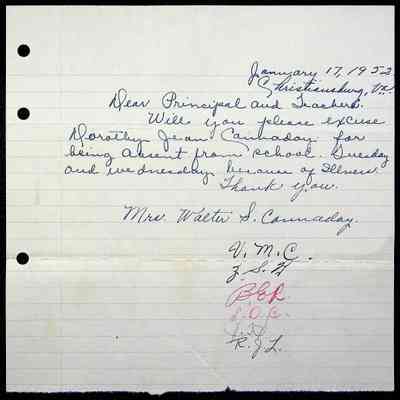 January 17, 1952
Christiansburg, Va.
Dear Principal and Teachers.
Will you please excuse
Dorothy Jean Cannaday for
being absent from school. Tuesday
and wednesday because of Illness.
Thank you.
Mrs. Walter S. Cannaday.
V. M. C.
Z. S. H
B.E.R.
R. J. L.